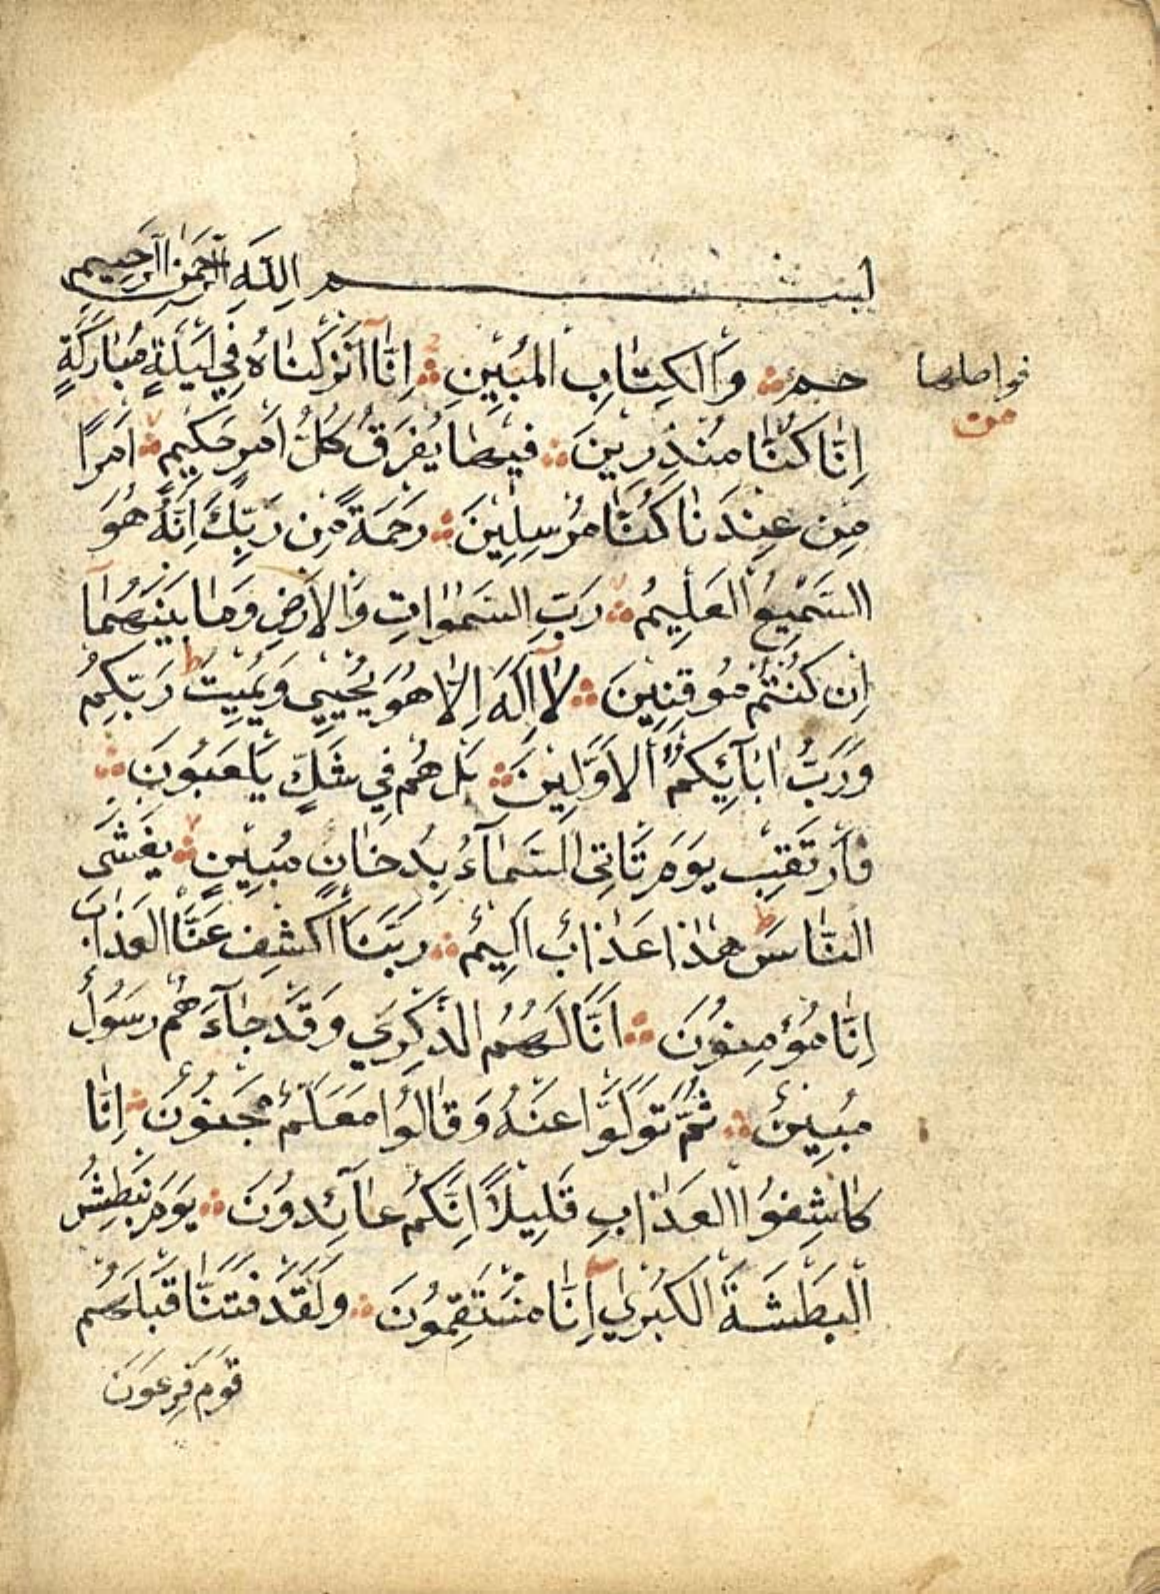 بِسْمِ اللَّهِ الرَّحْمَنِ الرَّحِيمِ
حم وَالْكِتَابِ الْمُبِينِ إِنَّا أَنْزَلْنَاهُ فِي لَيْلَةٍ مُبَارَكَةٍ
فواصلها
من
إِنَّا كُنَّا مُنْذِرِينَ فِيهَا يُفْرَقُ كُلُّ أَمْرٍ حَكِيمٍ أَمْرًا
مِنْ عِنْدِنَا إِنَّا كُنَّا مُرْسِلِينَ رَحْمَةً مِنْ رَبِّكَ إِنَّهُ هُوَ
السَّمِيعُ الْعَلِيمُ رَبِّ السَّمٰوَاتِ وَالْأَرْضِ وَمَا بَيْنَهُمَا
إِنْ كُنْتُمْ مُوقِنِينَ لَا إِلَهَ إِلَّا هُوَ يُحْيِي وَيُمِيتُ رَبُّكُمْ
وَرَبُّ آبَائِكُمُ الْأَوَّلِينَ بَلْ هُمْ فِي شَكٍّ يَلْعَبُونَ
فَارْتَقِبْ يَوْمَ تَأْتِي السَّمَاءُ بِدُخَانٍ مُبِينٍ يَغْشَى
النَّاسَ هٰذَا عَذَابٌ أَلِيمٌ رَبَّنَا اكْشِفْ عَنَّا الْعَذَابَ
إِنَّا مُؤْمِنُونَ أَنَّى لَهُمُ الذِّكْرَى وَقَدْ جَاءَهُمْ رَسُولٌ
مُبِينٌ ثُمَّ تَوَلَّوْا عَنْهُ وَقَالُوا مُعَلَّمٌ مَجْنُونٌ إِنَّا
كَاشِفُوا الْعَذَابِ قَلِيلًا إِنَّكُمْ عَائِدُونَ يَوْمَ نَبْطِشُ
الْبَطْشَةَ الْكُبْرَى إِنَّا مُنْتَقِمُونَ وَلَقَدْ فَتَنَّا قَبْلَهُمْ
قَوْمَ فِرْعَوْنَ